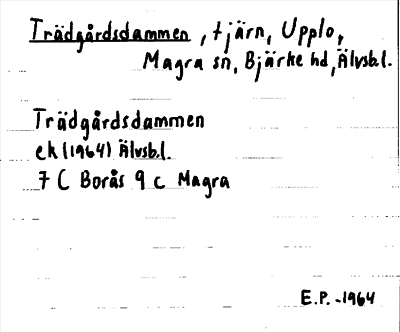 Trädgårdsdammen, tjärn, Upplo,
Magra sn, Bjärke hd, Älvsb.l.
Trädgårdsdammen
ek (1964) Älvsb.l.
7 C Borås 9 c Magra
E.P. -1964